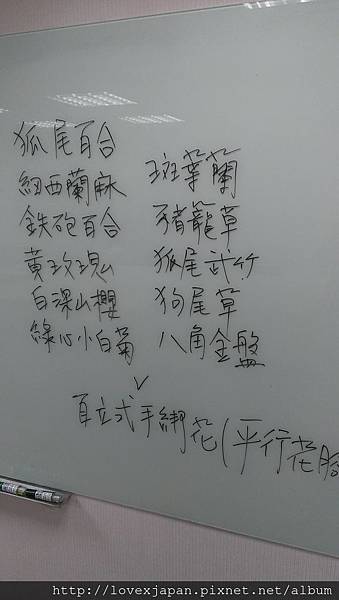 狐尾百合
紐西蘭麻
鉄砲百合
黃玫瑰
白深山櫻
綠心小白菊
斑葉蘭
豬籠草
狐尾武竹
狗尾草
八角金盤
直立式手綁花(平行花腳
http://lovexjapan.pixnet.net/album